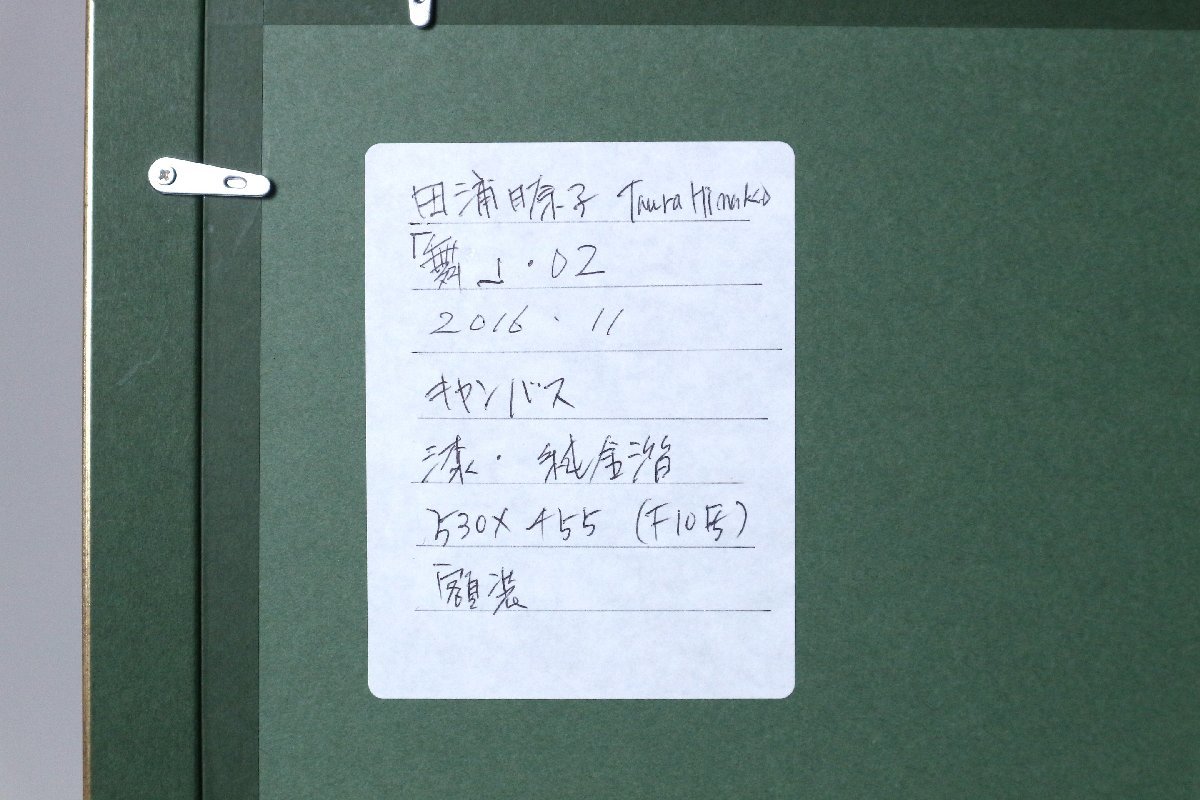 田浦日奈子 Taura Hinako
「舞」・02
2016・11
キャンバス
漆・純金箔
530×455 (F10号)
額装